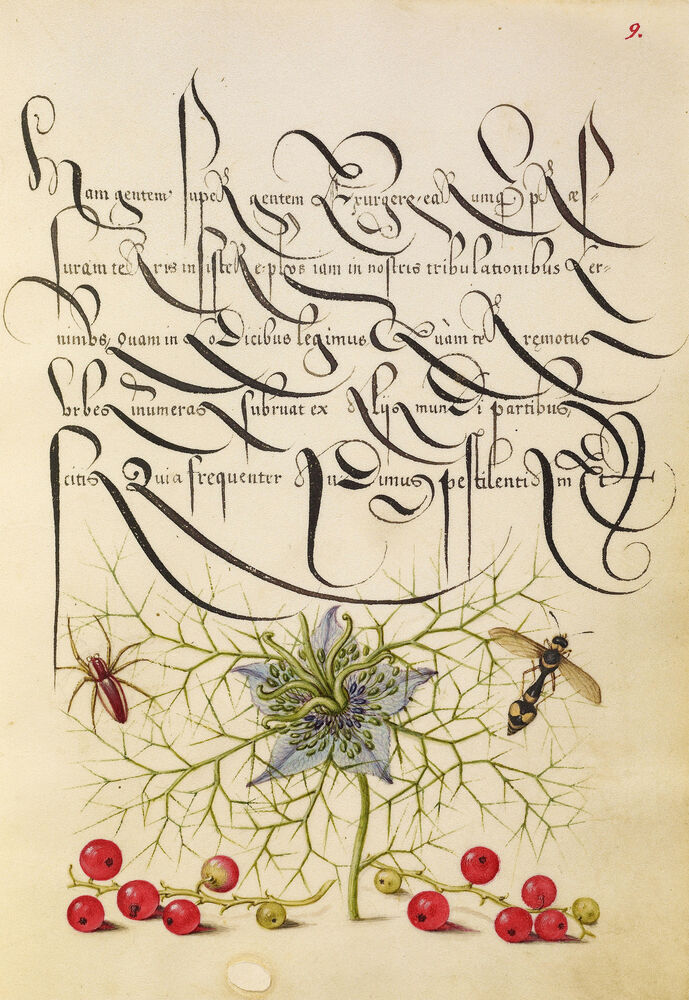 9.
Nam gentem super gentem Exurgere, earumq3 pręs=
suram terris insistere, plęos iam in nostris tribulationibus Cer=
nimus, Quam in Codicibus legimus Quàm terręmotus
Vrbes inumeras subruat ex Alijs mundi partibus,
scitis Quia frequenter Audimus, pestilentiam Et